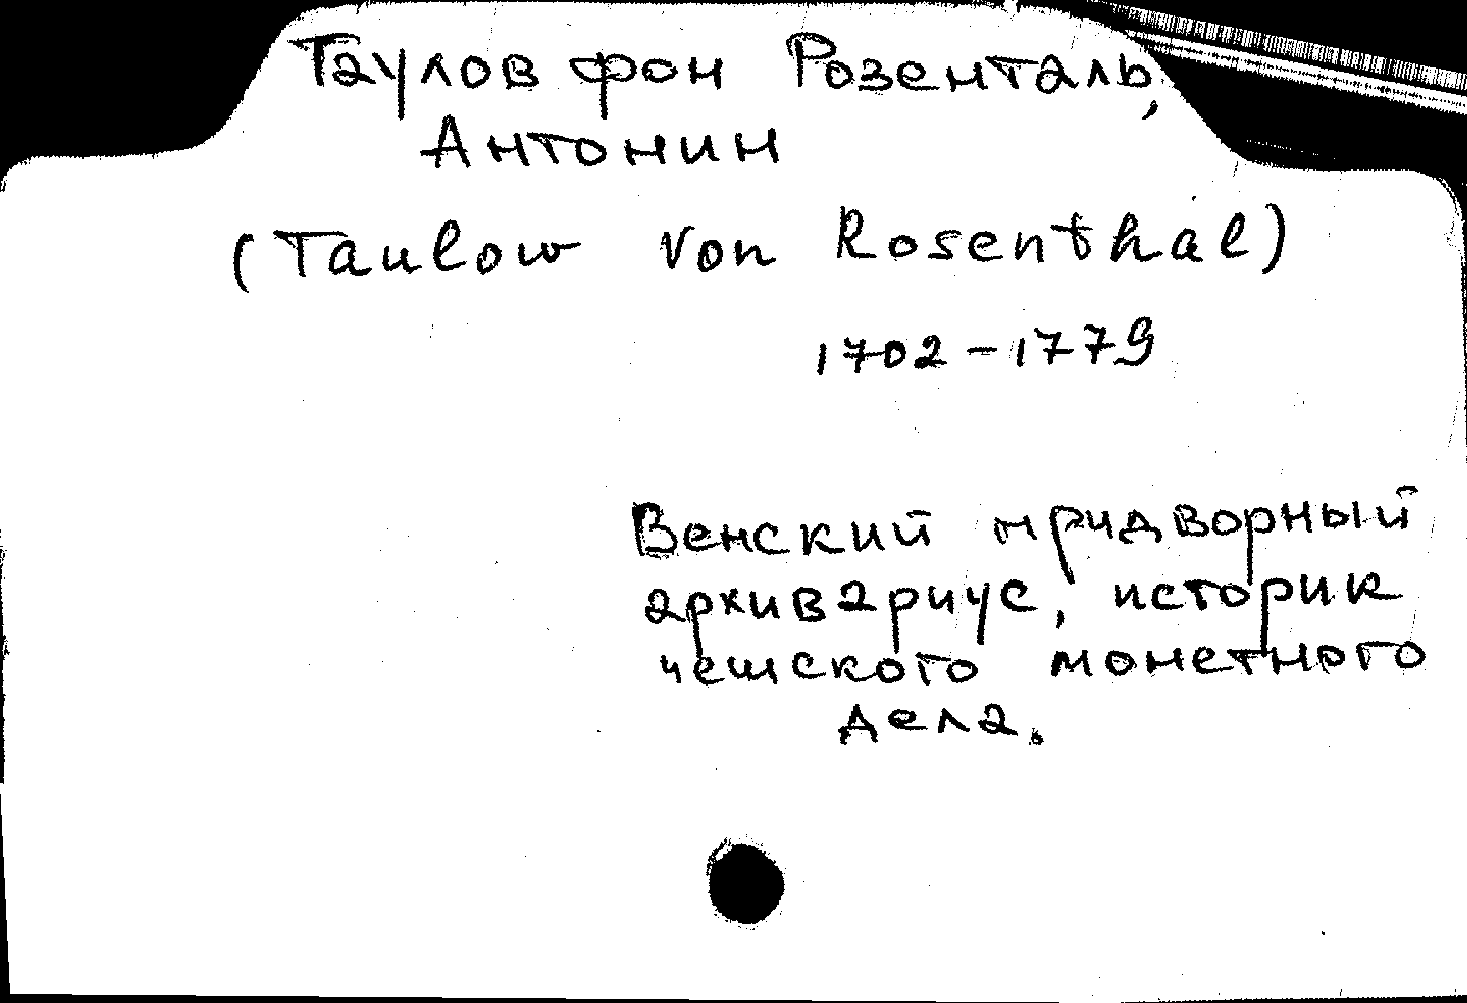 Таулов фон Розенталь,
Антонин
(Taulow von Rosenthal)
1702-1779
Венский придворный
архивариус, историк
чешского монетного
дела.